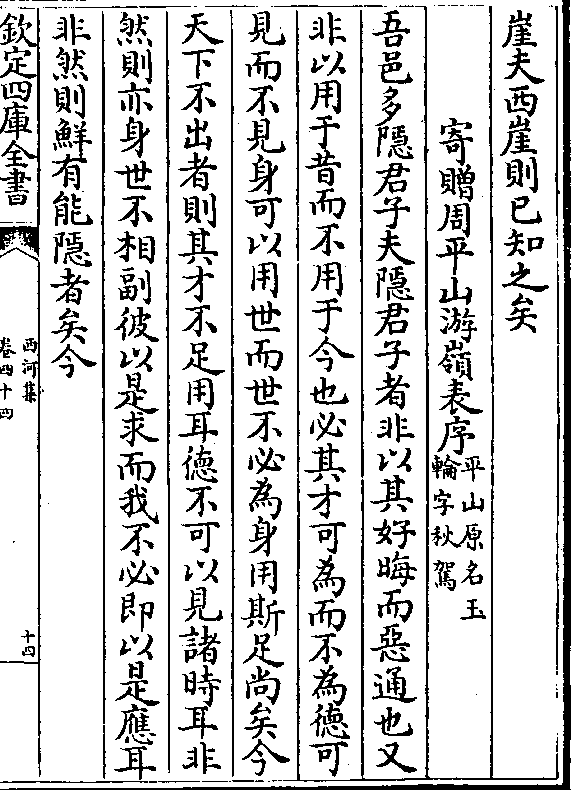 崖夫西崖則已知之矣
寄贈周平山游嶺表序平山原名玉
輪字秋駕
吾邑多隱君子夫隱君子者非以其好晦而惡通也又
非以用于昔而不用于今也必其才可為而不為德可
見而不見身可以用世而世不必為身用斯足尚矣今
天下不出者則其才不足用耳德不可以見諸時耳非
然則亦身世不相副彼以是求而我不必即以是應耳
非然則鮮有能隱者矣今
欽定四庫全書
西河集
卷四十四
十四